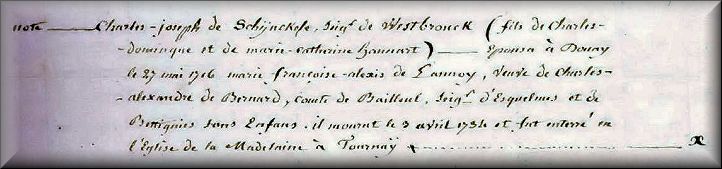 note — Charles-joseph de Schÿnckele, seigr. de Westbrouck (fils de Charles-
-dominique et de marie-catherine hannart) — Epousa à Douay
le 27 mai 1716 marie françoise-alexis de Lannoy, veuve de Charles-
-alexandre de Bernard, comte de Bailleul, seigr. d'Esquelmes et de
Bettignies sans Enfans. il mourut le 3 avril 1734 et fut enterré en
l'Eglise de la Madelaine à Tournay